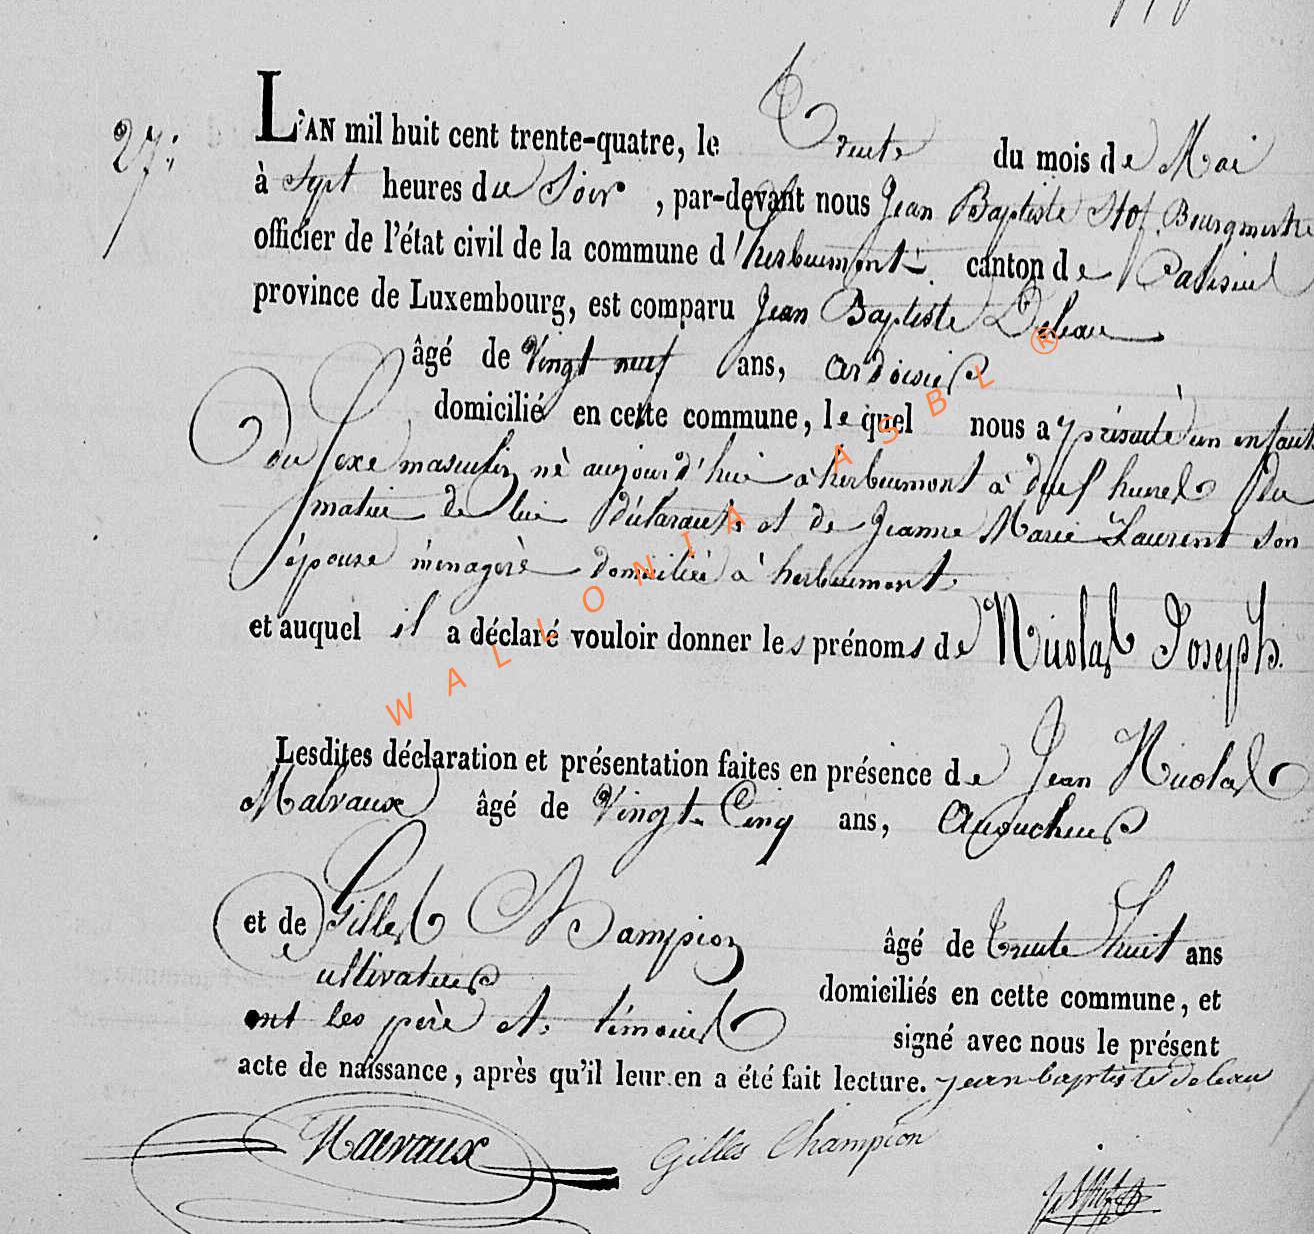 27.
L'AN mil huit cent trente-quatre, le Trente du mois de Mai
à Sept heures du Soir, par-devant nous Jean Baptiste Stof Bourgmestre
officier de l'état civil de la commune d'herbeumont canton de Paliseul
province de Luxembourg, est comparu Jean Baptiste Deleau
âgé de Vingt neuf ans, ardoisier
domicilié en cette commune, lequel nous a présenté un enfant
du Sexe masculin né aujourd'hui à herbeumont à heures du
matin de lui déclarant et de Jeanne Marie Laurent son
épouse ménagère domiciliée à herbeumont.
et auquel il a déclaré vouloir donner les prénoms de Nicolas Joseph.
Lesdites déclaration et présentation faites en présence de Jean Nicolas
Malvaux âgé de Vingt-Cinq ans, Accoucheur
et de Gilles Champion âgé de trente huit ans
cultivateur domiciliés en cette commune, et
ont les père et témoins signé avec nous le présent
acte de naissance, après qu'il leur en a été fait lecture. jean baptiste deleau
Malvaux Gilles Champion
WALLONIA ASBL ®